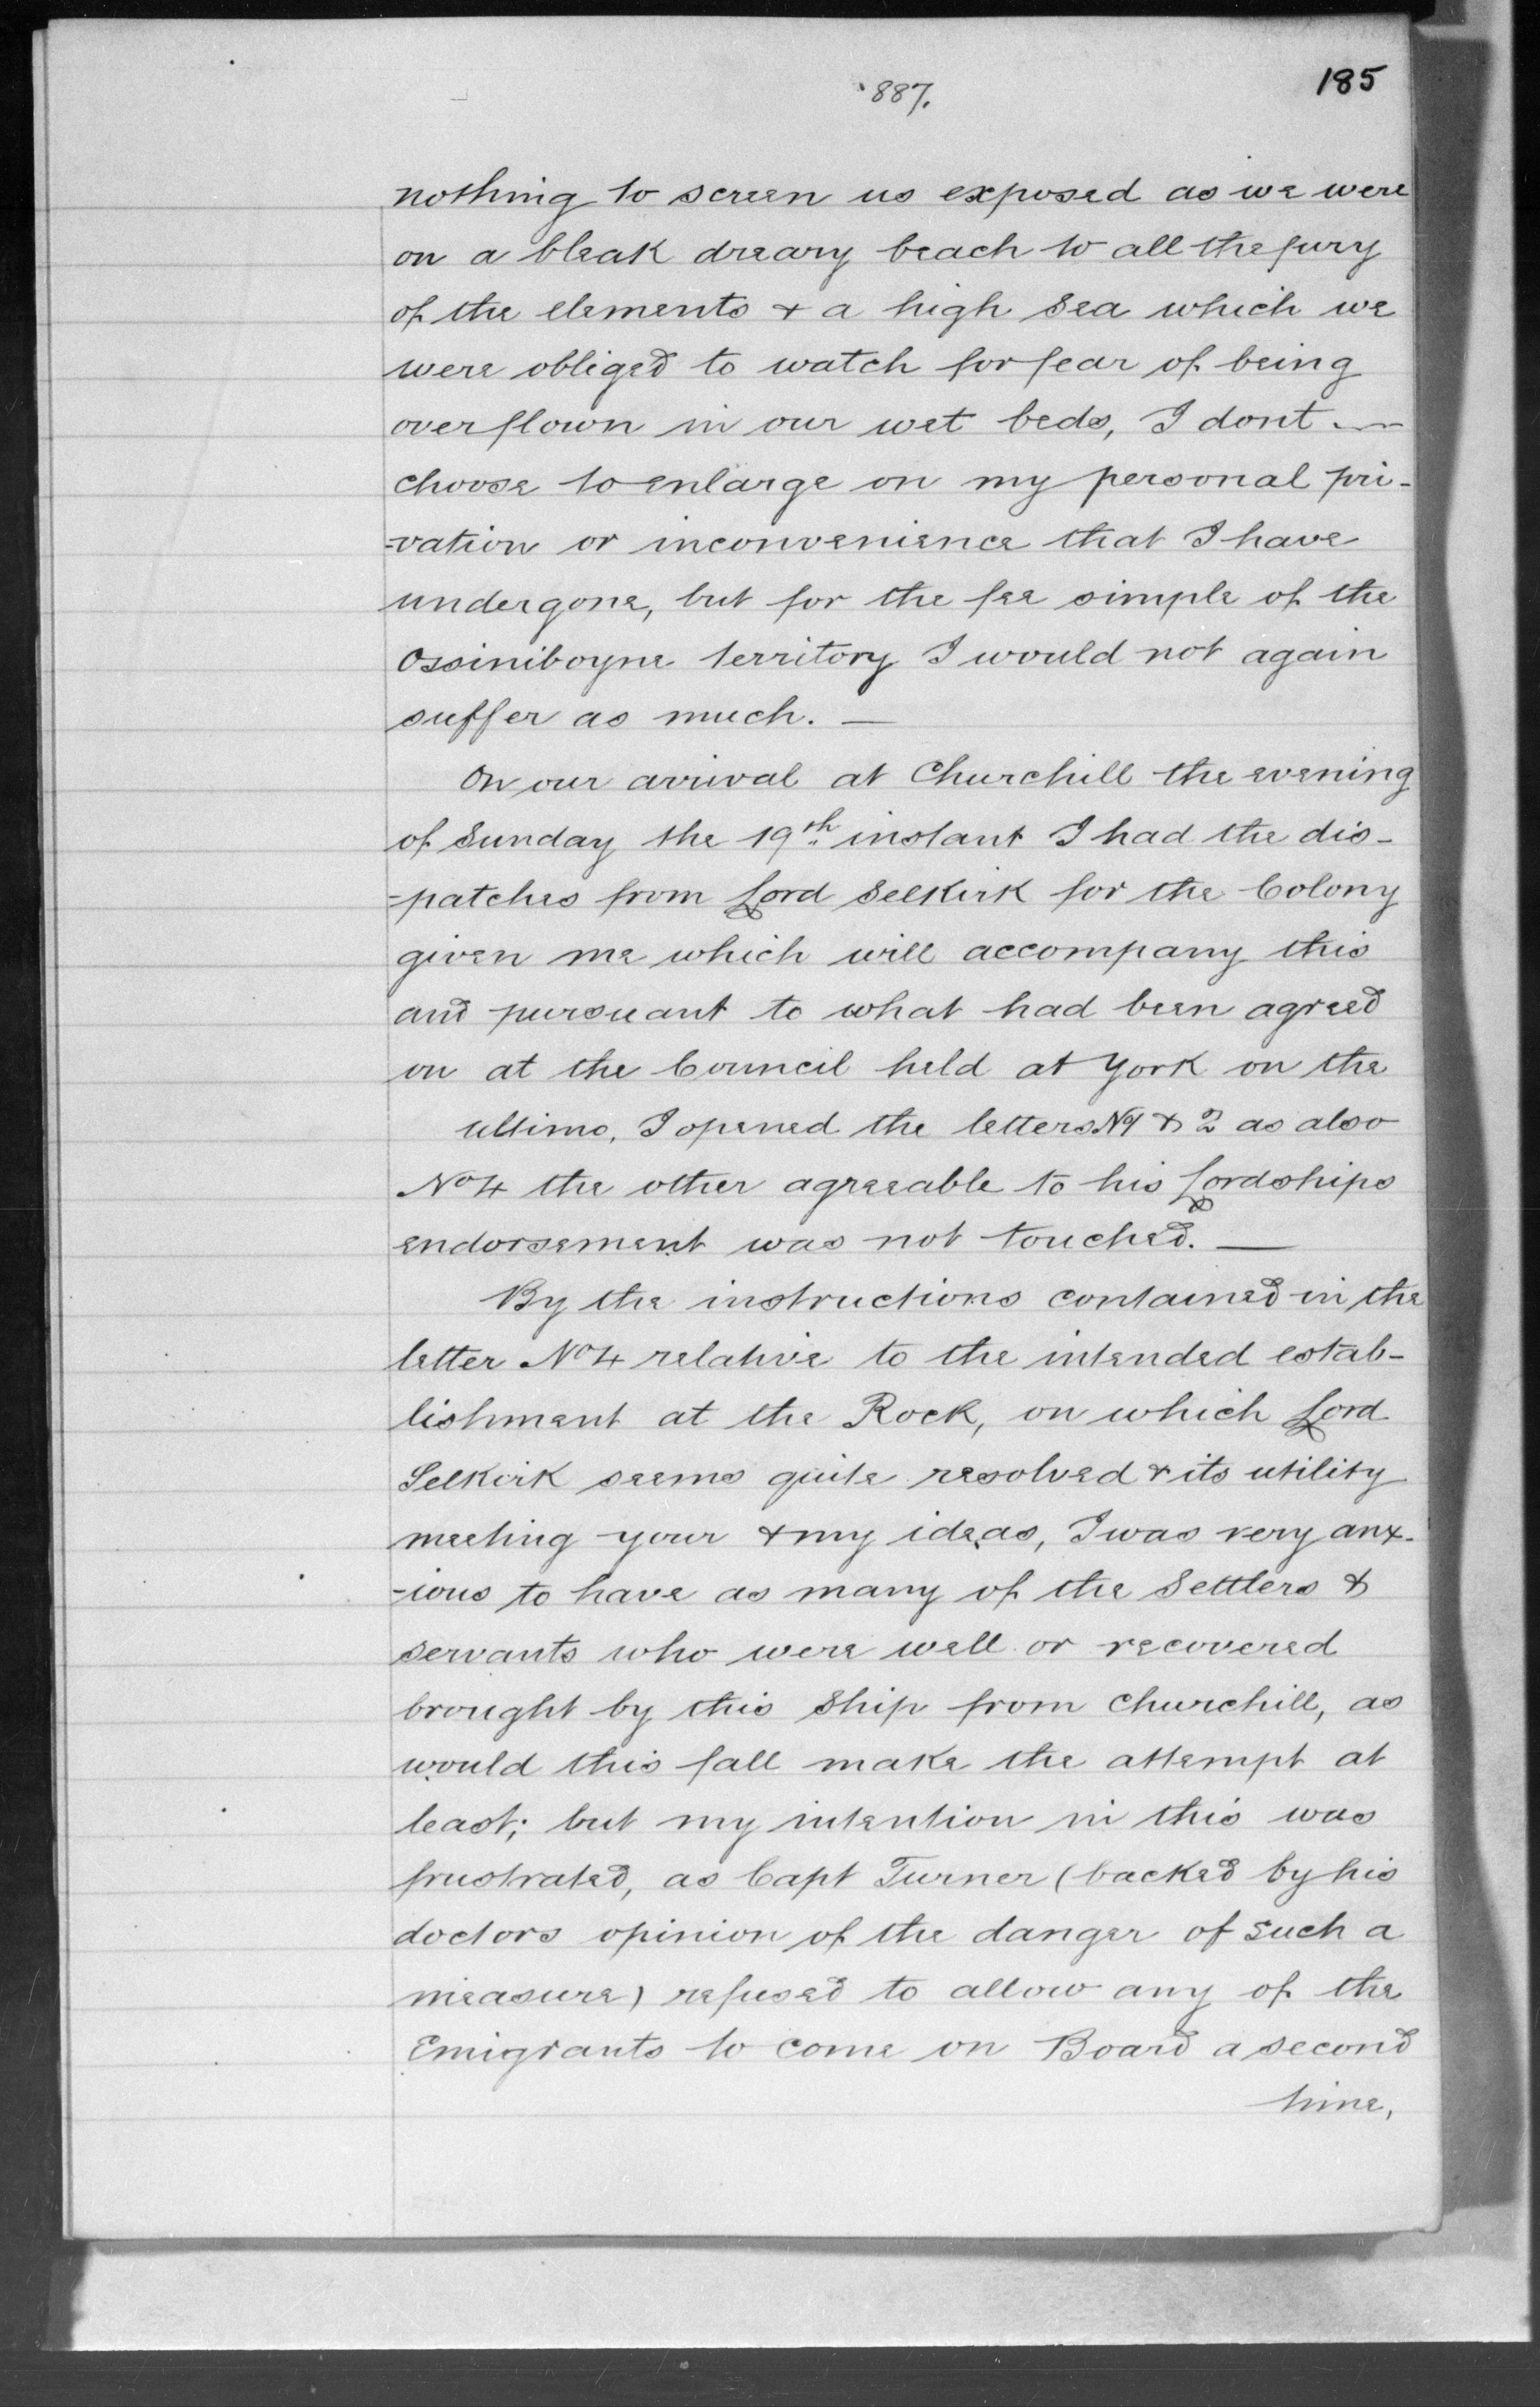 887.
185
nothing to screen us exposed as we were
on a bleak dreary beach to all the fury
of the elements & a high sea which we
were obliged to watch for fear of being
overflown in our wet beds, I dont —
choose to enlarge on my personal pri-
=vation or inconvenience that I have
undergone, but for the fee simple of the
Ossiniboyne territory I would not again
suffer as much. —
On our arrival at Churchill the evening
of Sunday the 19th instant I had the dis-
=patches from Lord Selkirk for the Colony
given me which will accompany this
and pursuant to what had been agreed
on at the Council held at York on the
ultimo, I opened the letters No 1 & 2 as also
No 4 the other agreeable to his Lordships
endorsement was not touched. —
By the instructions contained in the
letter No 4 relative to the intended estab-
lishment at the Rock, on which Lord
Selkirk seems quite resolved & its utility
meeting your & my ideas, I was very anx-
-ious to have as many of the Settlers &
servants who were well or recovered
brought by this Ship from Churchill, as
would this fall make the attempt at
least; but my intention in this was
frustrated, as Capt Turner (backed by his
doctors opinion of the danger of such a
measure) refused to allow any of the
Emigrants to come on Board a second
time,